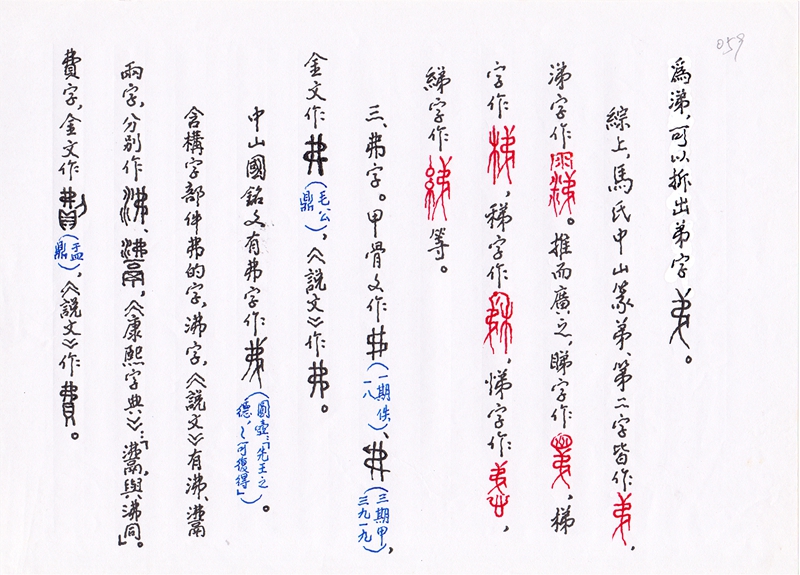 059
為涕,可以拆出弟字。
綜上,馬氏中山篆弟、第二字皆作,
涕字作。推而廣之,睇字作,梯
字作,稊字作,悌字作,
綈字作等。
三、弗字。甲骨文作(一期佚一八)、(三期甲三九一九),
金文作(毛公鼎),《說文》作。
中山國銘文有弗字作(圓壺:「先王之德,弗可復得」)。
含構字部件弗的字,沸字,《說文》有沸、灊
兩字,分別作、,《康熙字典》:「,與沸同」。
費字,金文作(盂鼎),《說文》作。